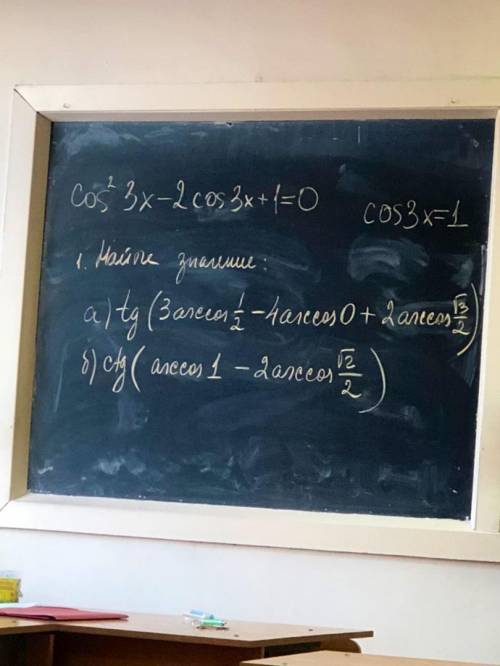 cos² 3x − 2 cos 3x + 1 = 0
cos 3x = 1
1. Найти значение:
а) tg (3 arccos 1/2 − 4 arccos 0 + 2 arccos √3/2)
б) ctg (arccos 1 − 2 arccos √2/2)